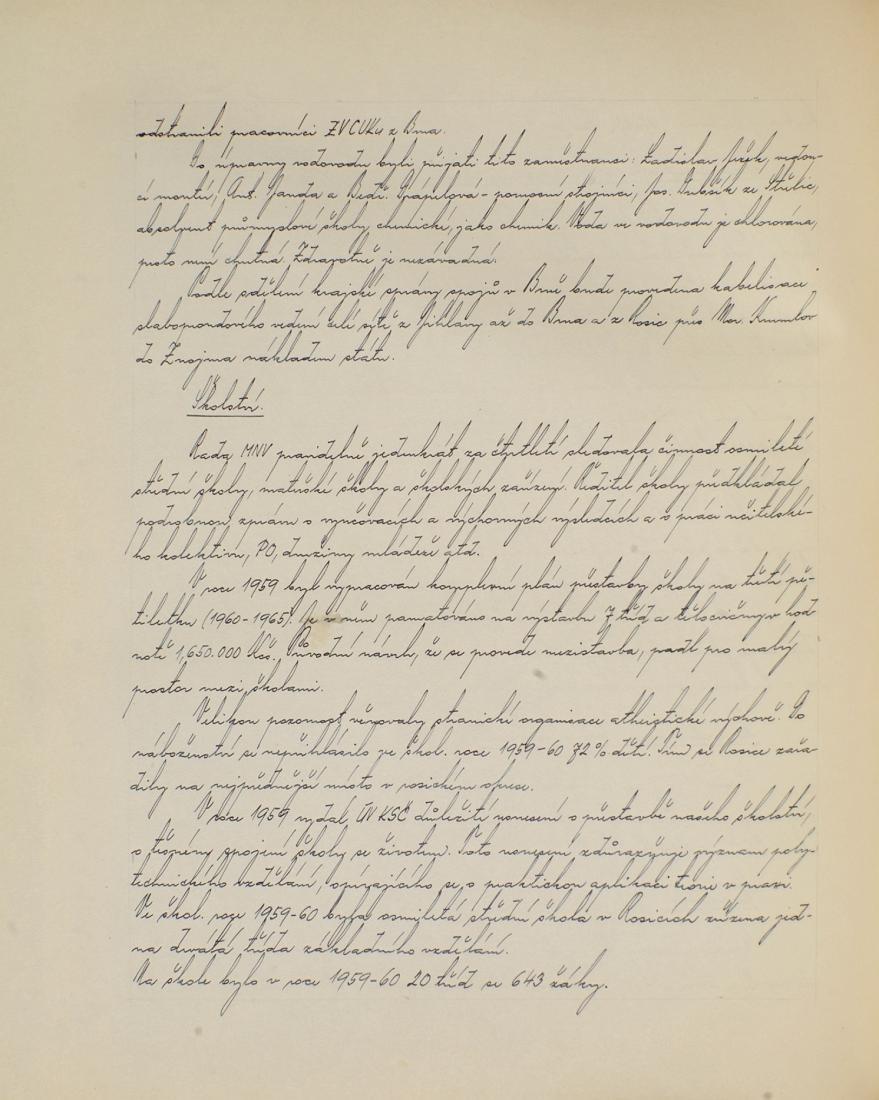 odstranili pracovníci ZVCUKu z Brna.
Do úpravny vodovodu byli přijati tito zaměstnanci: Ladislav Ježek, vedou-
cí montér, Ant. Janda a Bedř. - pomocní strojníci, Jos. ze Střelic,
absolvent průmyslové školy chemické, jako chemik. Voda ve vodovodu je chlorována,
proto není chutná. Zdravotně je nezávadná.
Podle sdělení krajské správy spojů v Brně bude provedena kabelisace
slaboproudového vedení celé sítě z Jihlavy až do Brna a z Rosic přes Mor. Krumlov
do Znojma nákladem státu.
Školství.
Rada MNV pravidelně jedenkrát za čtvrtletí sledovala činnost osmileté
střední školy, mateřské školy a školských zařízení. Ředitel školy předkládal
podrobnou zprávu o vyučovacích a výchovných výsledcích a o práci učitelské-
ho kolektivu, PO, družiny mládeže atd.
V roce 1959 byl vypracován komplexní plán přestavby školy na třetí pě-
tiletku (1960-1965). Je v něm pamatováno na výstavbu 7 tříd a tělocvičny v hod-
notě 1,650.000 Kčs. Původní návrh, že se provede mezistavba, padl pro malý
prostor mezi školami.
Velikou pozornost věnovaly stranické organisace atheistické výchově. Do
náboženství se nepřihlásilo ve škol. roce 1959-60 72% dětí. Tím se Rosice zařa-
dily na nejpřednější místo v rosickém okrese.
V roce 1959 vydal ÚV KSČ důležité usnesení o přestavbě našeho školství,
o těsném spojení školy se životem. Toto usnesení zdůrazňuje význam poly-
technického vzdělání, opírajícího se o praktickou aplikaci teorie v praxi.
Ve škol. roce 1959-60 byla osmiletá střední škola v Rosicích zřízena jed-
na devátá třída základního vzdělání.
Na škole bylo v roce 1959-60 20 tříd se 643 žáky.